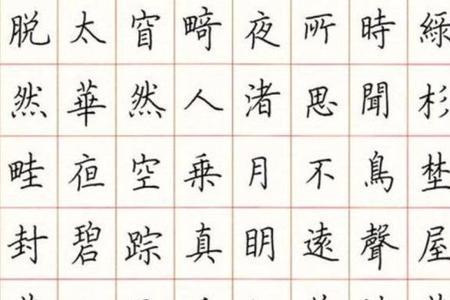 綠杉埜屋
時聞鳥聲
所思不遠
夜渚月眀
畸人乗真
窅然空踪
太華亱碧
脱然畦封